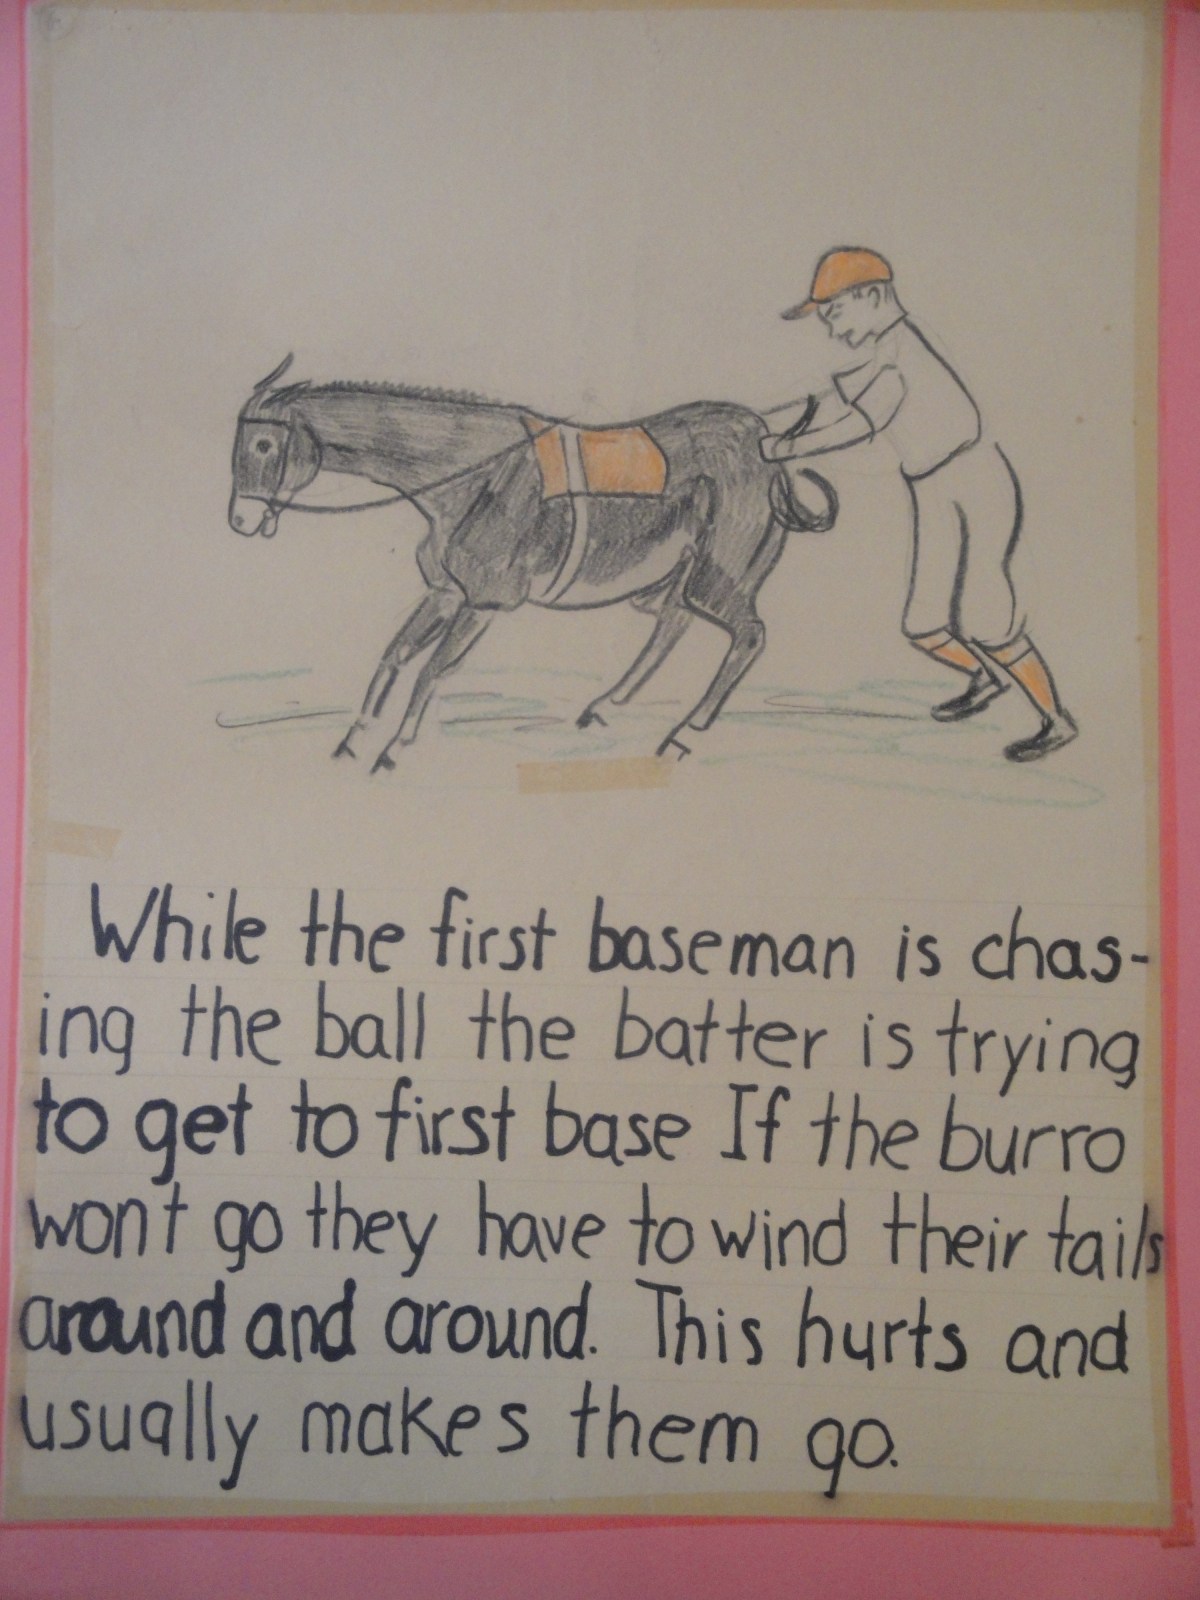 While the first baseman is chas-
ing the ball the batter is trying
to get to first base If the burro
wont go they have to wind their tails
around and around. This hurts and
usually makes them go.